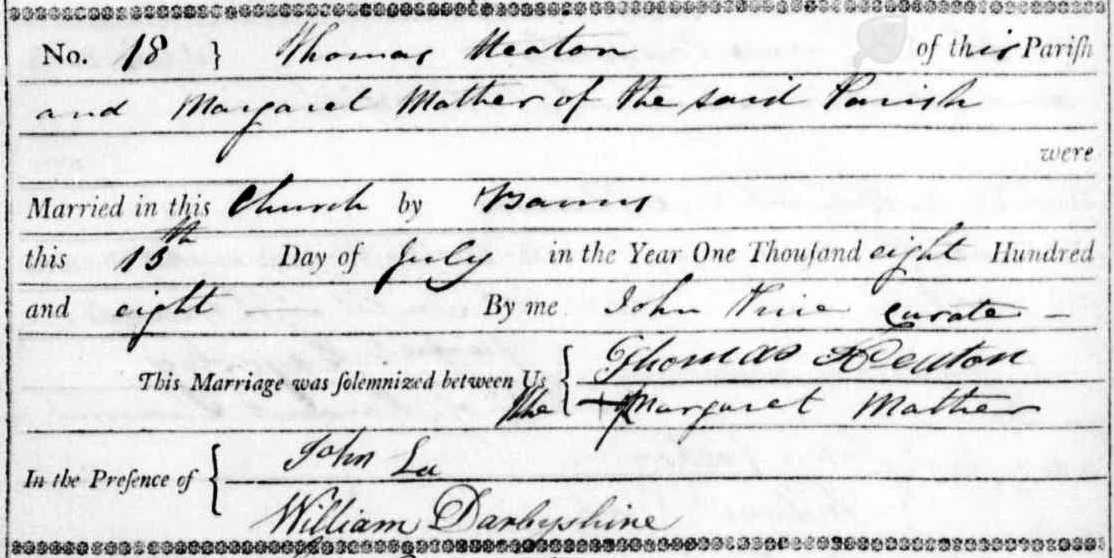 No. 18 } Thomas Heaton of this Pariſh
and Margaret Mather of the said Parish
were
Married in this Church by Banns
this Day of July in the Year One Thouſand eight Hundred
and eight By me John curate
This Marriage was ſolemnized between Us { Thomas Heaton
The + Margaret Mather
In the Preſence of { John Lee
William Darbyshire